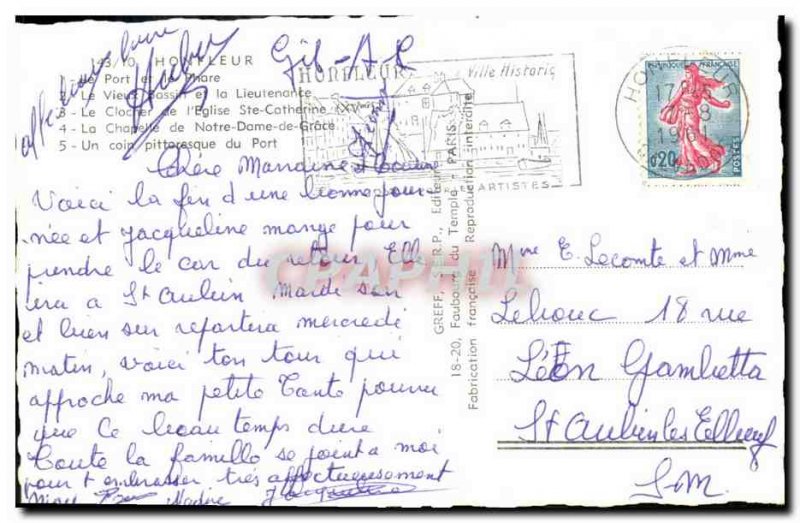 143/10 HONFLEUR
Le Port et le Phare
2 - Le Vieux Bassin et la Lieutenance
3 - Le Clocher de l'Eglise Ste-Catherine
4 - La Chapelle de Notre-Dame-de-Grâce
5 - Un coin pittoresque du Port
Huber
HONFLEUR
Ville Historiq
ARTISTES
HONFLEUR
17
8
1961
REPUBLIQUE FRANÇAISE
0,20
POSTES
Chère Marraine et
Voici la fin d'une bonne jour
née et Jacqueline mange pour
prendre le car du retour. Elle
ira à St Aubin mardi soir
et bien sur repartira mercredi
matin, voici ton tour qui
approche ma petite Tante pourvu
que ce beau temps dure
Toute la famille se joint a moi
pour t'embrasser très affectueusement
Nadine Jacqueline
GREFF, Editeur
18-20, Faubourg du Temple - PARIS
Fabrication française - Reproduction interdite
CPAPHIL
Mme E. Lecomte et Mme
Lehouc 18 rue
Léon Gambetta
St Aubin les Elbeuf
S.M.